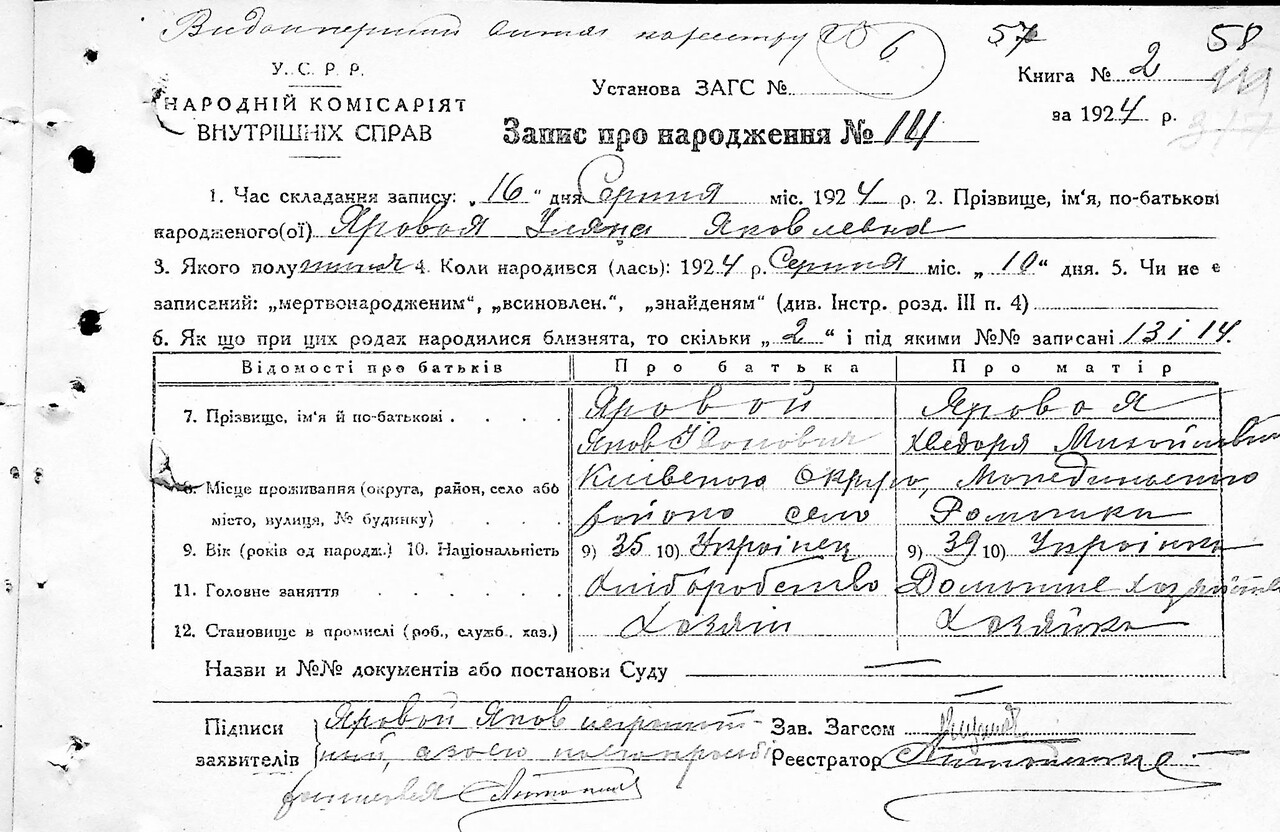 витяг 6 57 58
У. С. Р. Р.
НАРОДНІЙ КОМІСАРІЯТ
ВНУТРІШНІХ СПРАВ
Установа ЗАГС №
Книга № 2
за 1924 р.
119
317
Запис про народження № 14
1. Час складання запису: „16“ дня Серпня міс. 1924 р. 2. Прізвище, ім'я, по-батькові
народженого(ої) Яровая Уляна Яковлевна
3. Якого полу 4. Коли народився (лась): 1924 р. Серпня міс. „10“ дня. 5. Чи не є
записаний: „мертвонародженим“, „всиновлен.“, „знайденям“ (див. Інстр. розд. III п. 4)
6. Як що при цих родах народилися близнята, то скільки „2“ і під якими №№ записані 13 і 14.
Відомості про батьків Про батька Про матір
7. Прізвище, ім'я й по-батькові . . . . Яровой Яровая
Яков Хведоря Михайловна
8. Місце проживання (округа, район, село або Киівского Округа,
місто, вулиця, № будинку) . . . . района село
9. Вік (років од народж.) 10. Національність 9) 35 10) Украінец 9) 39 10) Украінка
11. Головне заняття . . . . . . Хліборобство Домашне хазяйство
12. Становище в промислі (роб., служб., хаз.) Хозяін Хозяйка
Назви и №№ документів або постанови Суду
Підписи Яровой Яков неграмот-
заявителів ний, а за его
Зав. Загсом
Реєстратор